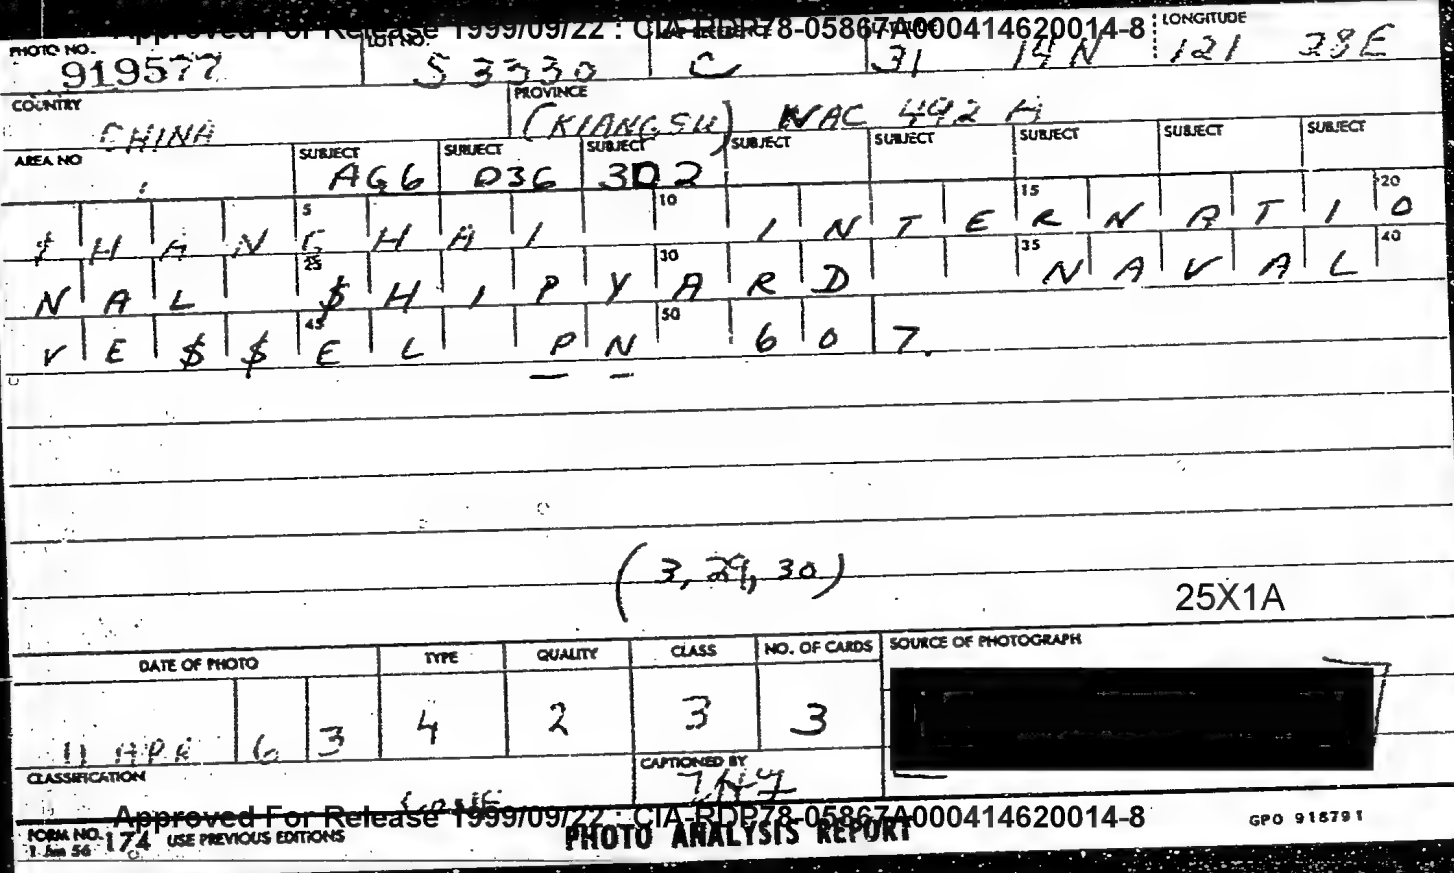 Approved For Release 1999/09/22 : CIA-RDP78-05867A000414620014-8
PHOTO NO. 919577 LOT NO. S 3330 C 31 14 N LONGITUDE 121 28 E
COUNTRY CHINA PROVINCE (KIANGSU) WAC 492 A
AREA NO SUBJECT AG6 SUBJECT D36 SUBJECT 3D2 SUBJECT SUBJECT SUBJECT SUBJECT SUBJECT
5 10 15 20
$HANGHAI INTERNATIO
25 30 35 40
NAL $HIPYARD NAVAL
45 50
VE$$EL PN 607.
(3, 29, 30)
25X1A
DATE OF PHOTO TYPE QUALITY CLASS NO. OF CARDS SOURCE OF PHOTOGRAPH
11 APR 6 3 4 2 3 3
CLASSIFICATION CAPTIONED BY
Approved For Release 1999/09/22 : CIA-RDP78-05867A000414620014-8
FORM NO. 174 USE PREVIOUS EDITIONS PHOTO ANALYSIS REPORT GPO 918791
1 Jan 56